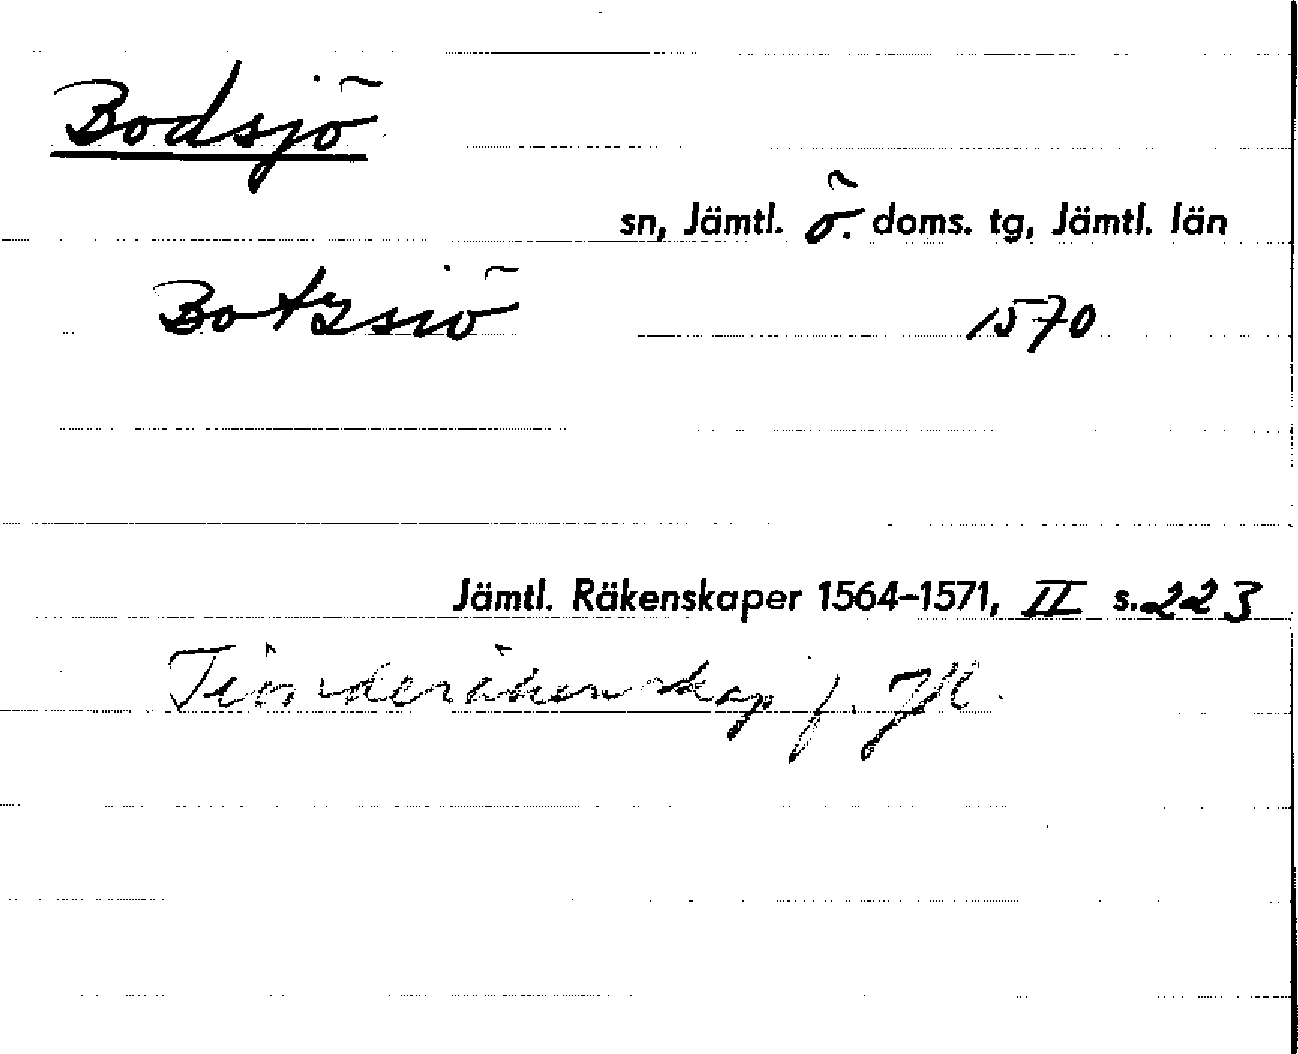 Bodsjö
sn, Jämtl. ö. doms. tg, Jämtl. län
Botzsiö 1570
Jämtl. Räkenskaper 1564–1571, II s. 223
Tionderäkenskap f. Jll.